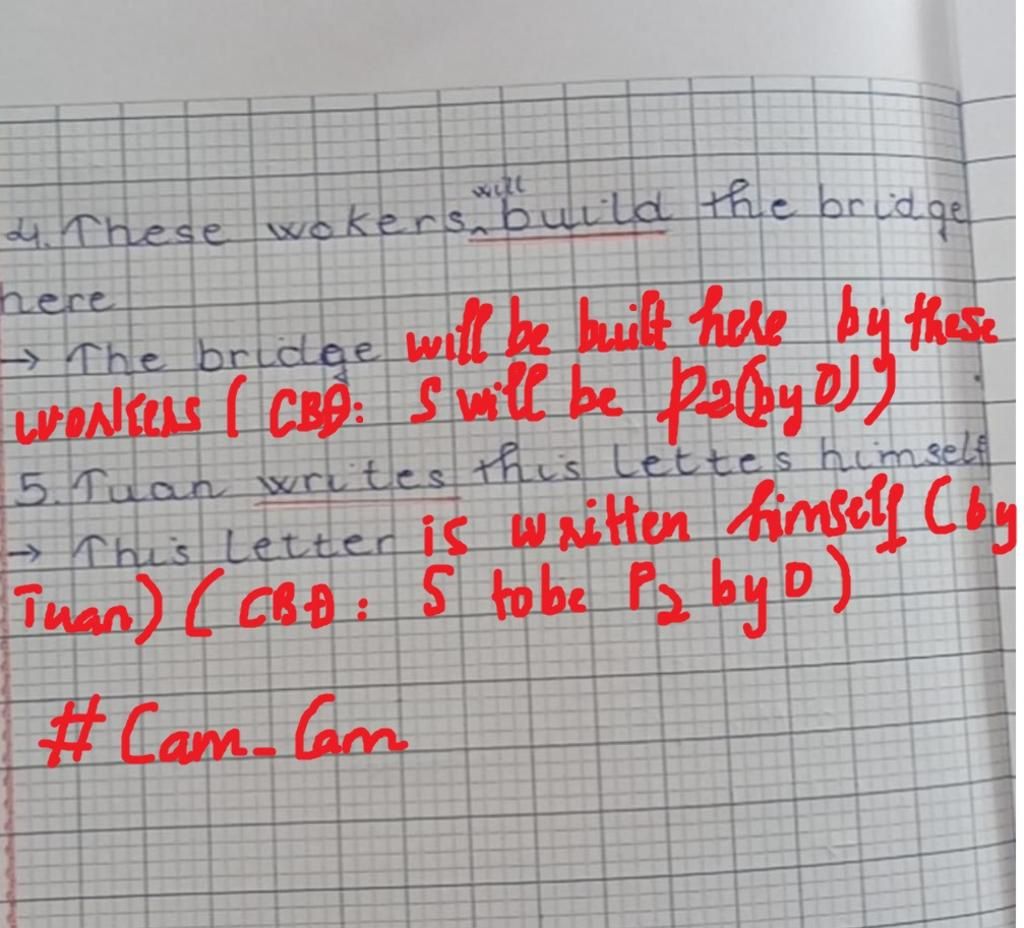 will
4. These wokers ^ build the bridge
here
→ The bridge will be built here by these
workers ( CBĐ: S will be P2(by O))
5. Tuan writes this lettes himself
→ This letter is written himself (by
Tuan) (CBĐ: S tobe P2 by O)
# Cam_Cam